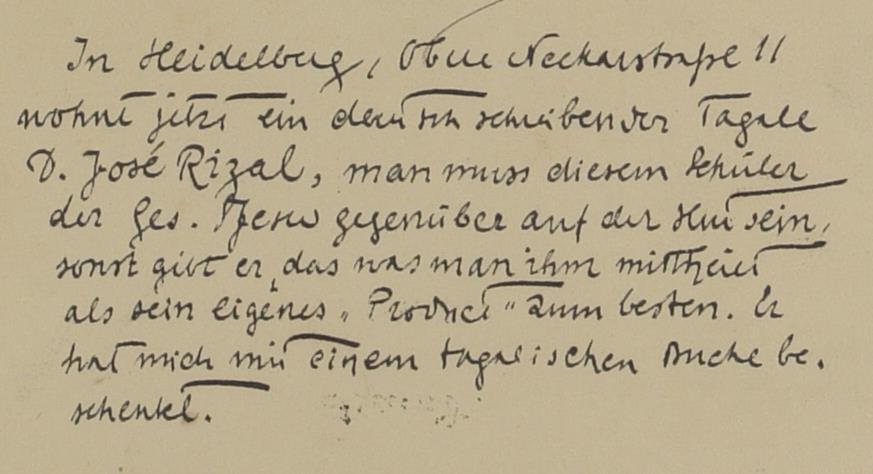 In Heidelberg, Obere Neckarstraße 11
wohnt jetzt ein deutsch schreibender Tagale
D. José Rizal, man muss diesem Schüler
der Ges. Jesu gegenüber auf der Hut sein,
sonst gibt er, das was man ihm mittheilt
als sein eigenes „Product“ zum besten. Er
hat mich mit einem tagalischen Buche be-
schenkt.